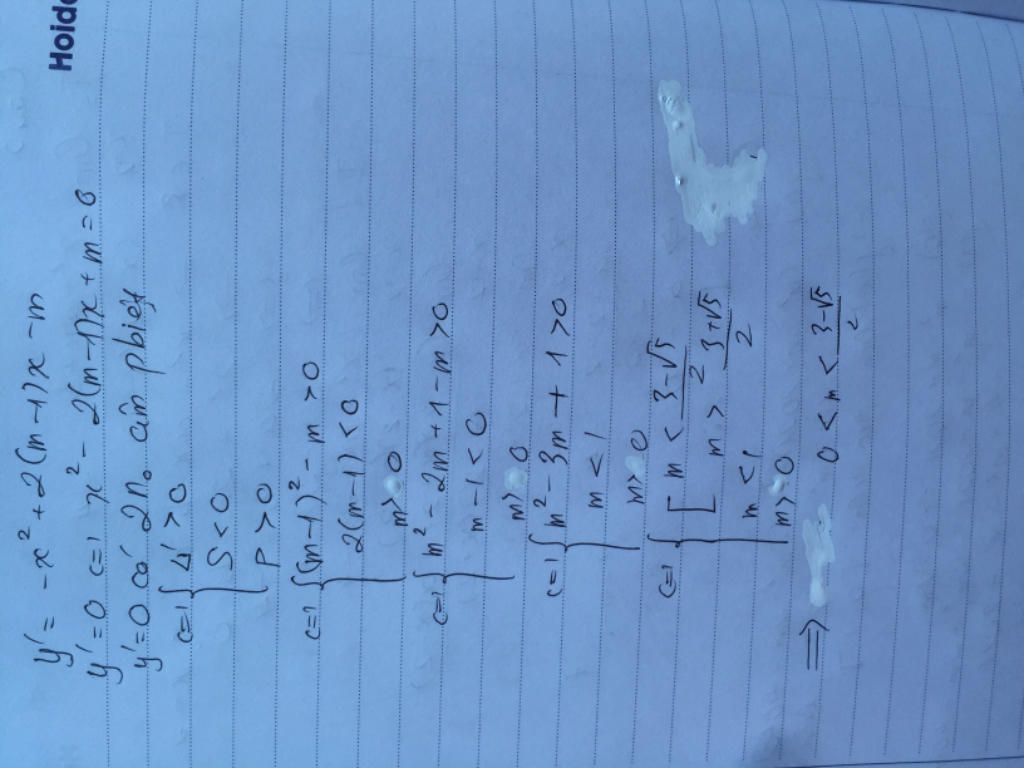 Hoido
y' = -x² + 2(m-1)x - m
y' = 0 <=> x² - 2(m-1)x + m = 0
y' = 0 có 2 no âm pbiệt
<=> { Δ' > 0
S < 0
P > 0
<=> { (m-1)² - m > 0
2(m-1) < 0
m > 0
<=> { m² - 2m + 1 - m > 0
m - 1 < 0
m > 0
<=> { m² - 3m + 1 > 0
m < 1
m > 0
<=> { [ m < (3-√5)/2
m > (3+√5)/2
m < 1
m > 0
=> 0 < m < (3-√5)/2